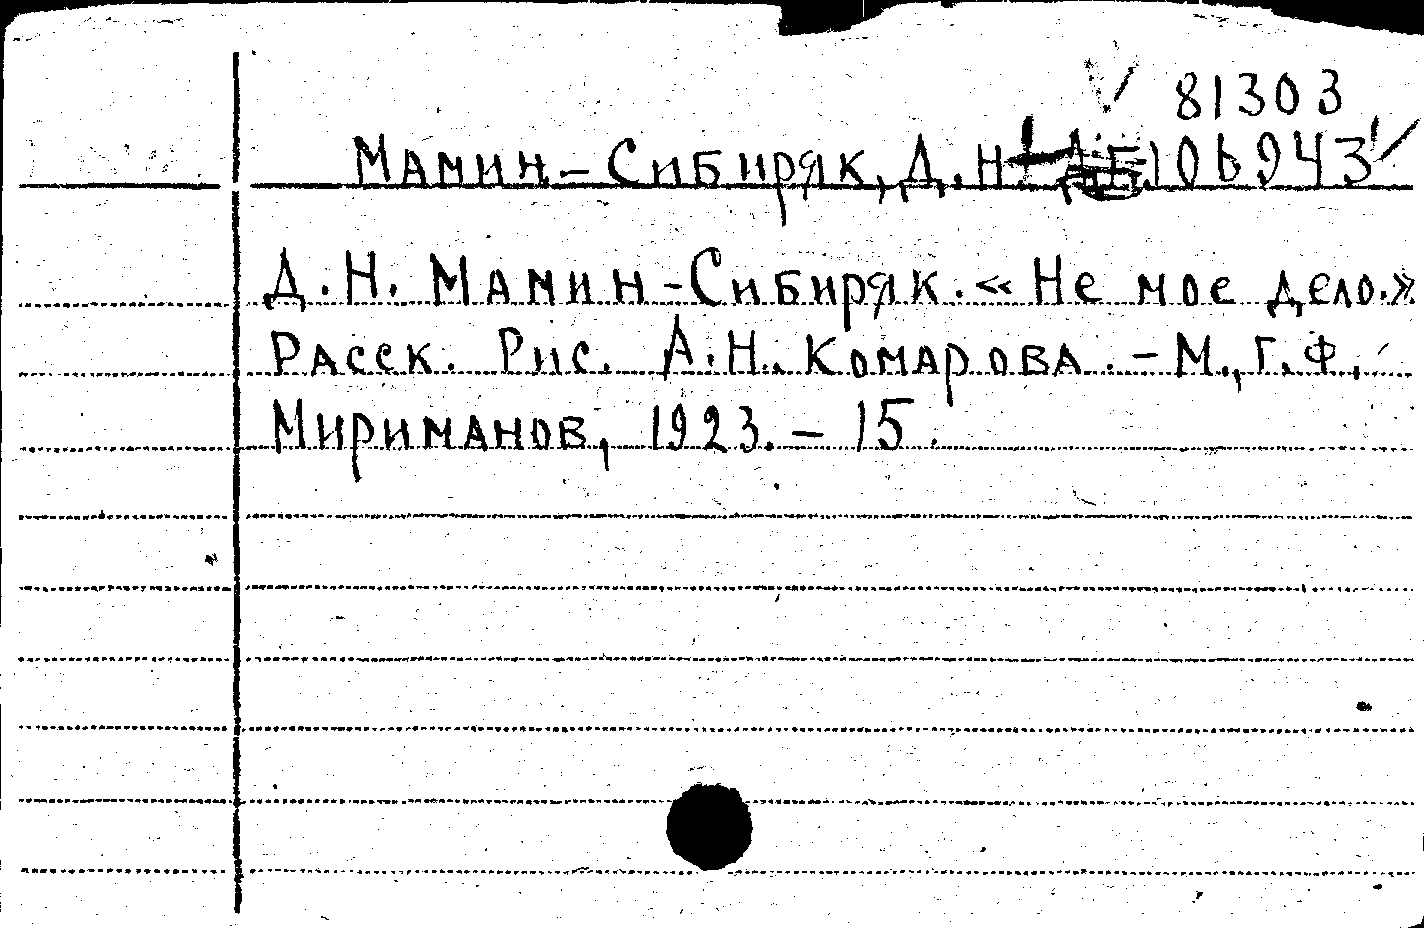 81303
Мамин-Сибиряк, Д.Н. 106943
Д.Н. Мамин-Сибиряк. «Не мое дело.»
Расск. Рис. А.Н. Комарова. - М., Г.Ф.
Мириманов, 1923. - 15.